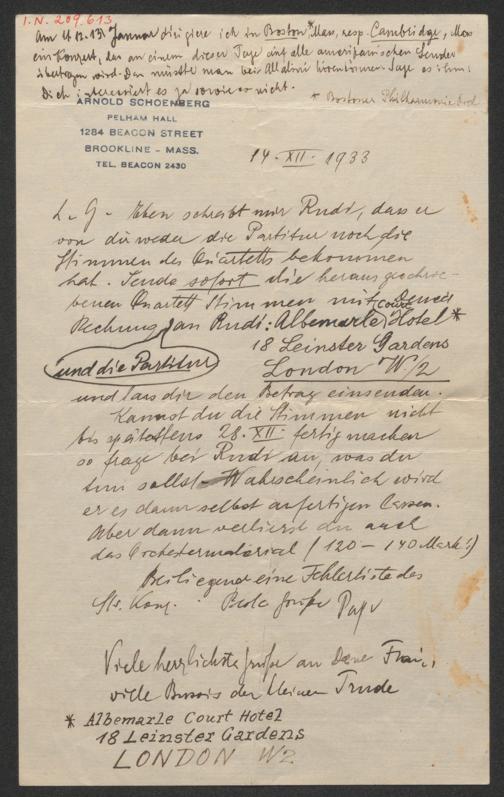 I.N. 209.613
Am 11. 12. 13. Januar dirigiere ich in Boston* Mass, resp. Cambridge, Mass
ein Konzert, das an einem dieser Tage auf alle amerikanischen Sender
übertragen wird. Das müsste man bei hören können. Sage es ihm:
Dich interessiert es ja sowieso nicht.
* Bostoner Philharmonie Orch
ARNOLD SCHOENBERG
PELHAM HALL
1284 BEACON STREET
BROOKLINE - MASS.
TEL. BEACON 2430
14. XII. 1933
L. G. Eben schreibt mir Rudi, dass er
von dir weder die Partitur noch die
Stimmen des Quartetts bekommen
hat. Sende sofort die herausgeschrie-
benen Quartett Stimmen mit Deiner
Rechnung an Rudi: Albemarle Court Hotel *
und die Partitur
18 Leinster Gardens
London W/2
und lass dir den Betrag einsenden.
Kannst du die Stimmen nicht
bis spätestens 28. XII. fertig machen
so frage bei Rudi an, was du
tun sollst. Wahrscheinlich wird
er es dann selbst anfertigen lassen.
Aber dann verlierst du auch
das Orchestermaterial (120 - 140 Mark!)
Beiliegend eine Fehlerliste des
Str. Konz. Viele Grüße Papa
Viele herzlichste Grüße an Deine Frau,
viele Bussis der kleinen Trude
* Albemarle Court Hotel
18 Leinster Gardens
LONDON W2